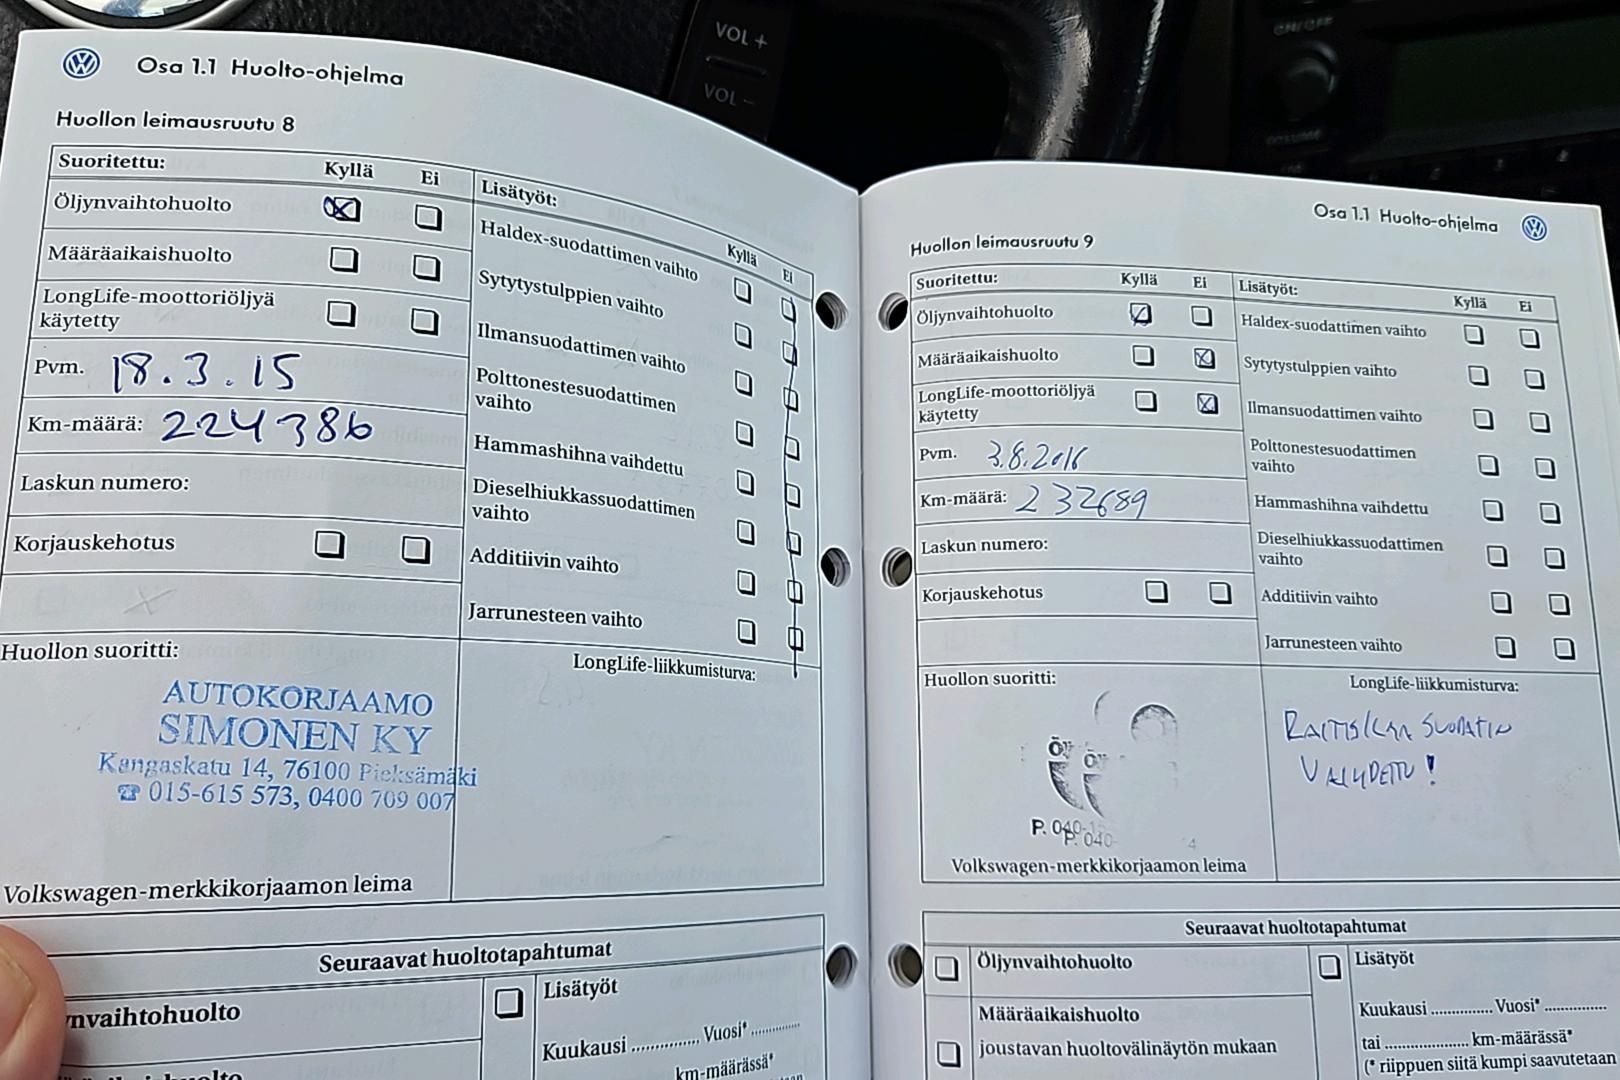 VOL +
VOL -
Osa 1.1 Huolto-ohjelma
Huollon leimausruutu 8
Suoritettu: Kyllä Ei
Öljynvaihtohuolto
Määräaikaishuolto
LongLife-moottoriöljyä
käytetty
Pvm. 18.3.15
Km-määrä: 224386
Laskun numero:
Korjauskehotus
Huollon suoritti:
AUTOKORJAAMO
SIMONEN KY
Kangaskatu 14, 76100 Pieksämäki
☎ 015-615 573, 0400 709 007
Volkswagen-merkkikorjaamon leima
Lisätyöt:
Kyllä Ei
Haldex-suodattimen vaihto
Sytytystulppien vaihto
Ilmansuodattimen vaihto
Polttonestesuodattimen
vaihto
Hammashihna vaihdettu
Dieselhiukkassuodattimen
vaihto
Additiivin vaihto
Jarrunesteen vaihto
LongLife-liikkumisturva:
Seuraavat huoltotapahtumat
nvaihtohuolto
Lisätyöt
Kuukausi .............. Vuosi* ............
km-määrässä*
Osa 1.1 Huolto-ohjelma
Huollon leimausruutu 9
Suoritettu: Kyllä Ei
Öljynvaihtohuolto
Määräaikaishuolto
LongLife-moottoriöljyä
käytetty
Pvm. 3.8.2016
Km-määrä: 232689
Laskun numero:
Korjauskehotus
Huollon suoritti:
P. 040-
P. 040-
Volkswagen-merkkikorjaamon leima
Lisätyöt: Kyllä Ei
Haldex-suodattimen vaihto
Sytytystulppien vaihto
Ilmansuodattimen vaihto
Polttonestesuodattimen
vaihto
Hammashihna vaihdettu
Dieselhiukkassuodattimen
vaihto
Additiivin vaihto
Jarrunesteen vaihto
LongLife-liikkumisturva:
RAITISILMAN SUODATIN
VAIHDETTU!
Seuraavat huoltotapahtumat
Öljynvaihtohuolto
Määräaikaishuolto
joustavan huoltovälinäytön mukaan
Lisätyöt
Kuukausi .............. Vuosi* ..............
tai ................... km-määrässä*
(* riippuen siitä kumpi saavutetaan